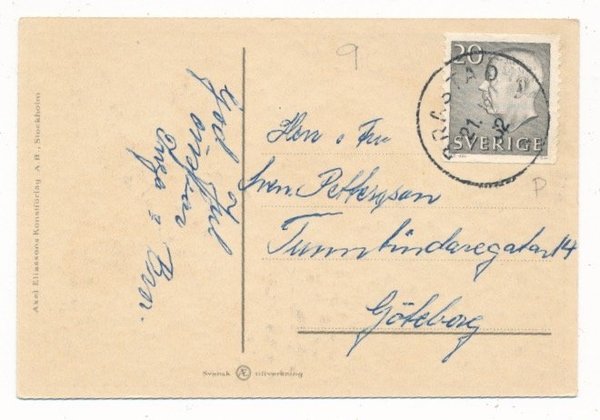 9
20
SVERIGE
21.
P
God Jul
önskar
Inga & Bror.
Herr o Fru
Sven Pettersson
Tunnbindaregatan 14
Göteborg
Axel Eliassons Konstförlag A.B., Stockholm
Svensk Æ tillverkning